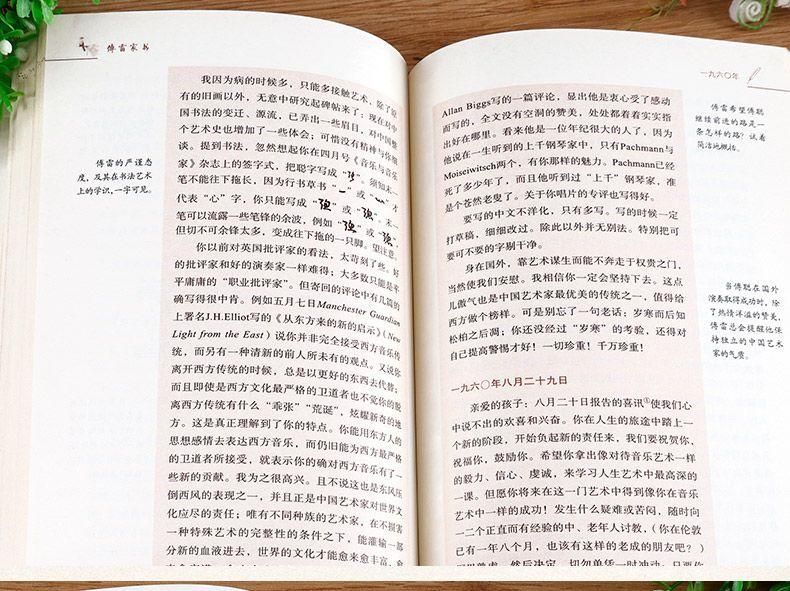 傅雷家书
我因为病的时候多，只能多接触艺术，除了原
有的旧画以外，无意中研究起碑帖来了：现在对中
国书法的变迁、源流，已弄出一些眉目，对中国整
个艺术史也增加了一些体会；可惜没有精神与你细
谈。提到书法，忽然想起你在四月号《音乐与音乐
家》杂志上的签字式，把聪字写成
笔不能往下拖长，因为行书草书
代表“心”字，你只能写成
笔可以流露一些笔锋的余波，例如
但切不可余锋太多，变成往下拖的一只脚。望注意。
你以前对英国批评家的看法，太苛刻了些。好
的批评家和好的演奏家一样难得；大多数只能是平
平庸庸的“职业批评家”。但寄回的评论中有几篇的
确写得很中肯。例如五月七日Manchester Guardian
上署名J.H.Elliot写的《从东方来的新的启示》(New
Light from the East) 说你并非完全接受西方音乐传
统，而另有一种清新的前人所未有的观点。又说你
离开西方传统的时候，总是以更好的东西去代替；
而且即使是西方文化最严格的卫道者也不觉你的脱
离西方传统有什么“乖张”“荒诞”，炫耀新奇的地
方。这是真正理解到了你的特点。你能用东方人的
思想感情去表达西方音乐，而仍旧能为西方最严格
的卫道者所接受，就表示你的确对西方音乐有了一
些新的贡献。我为之很高兴。且不说这也是东风压
倒西风的表现之一，并且正是中国艺术家对世界文
化应尽的责任；唯有不同种族的艺术家，在不损害
一种特殊艺术的完整性的条件之下，能灌输一部
分新的血液进去，世界的文化才能愈来愈丰富，愈
傅雷的严谨态
度，及其在书法艺术
上的学识，一字可见。
一九六〇年
Allan Biggs写的一篇评论，显出他是衷心受了感动
而写的，全文没有空洞的赞美，处处都着着实实指
出好在哪里。看来他是一位年纪很大的人了，因为
他说在一生听到的上千钢琴家中，只有Pachmann与
Moiseiwitsch两个，有你那样的魅力。Pachmann已经
死了多少年了，而且他听到过“上千”钢琴家，准
是个苍然老叟了。关于你唱片的专评也写得好。
要写的中文不洋化，只有多写。写的时候一定
打草稿，细细改过。除此以外并无别法。特别把可
要可不要的字剔干净。
身在国外，靠艺术谋生而能不奔走于权贵之门，
当然使我们安慰。我相信你一定会坚持下去。这点
儿傲气也是中国艺术家最优美的传统之一，值得给
西方做个榜样。可是别忘了一句老话：岁寒而后知
松柏之后凋；你还没经过“岁寒”的考验，还得对
自己提高警惕才好！一切珍重！千万珍重！
一九六〇年八月二十九日
亲爱的孩子：八月二十日报告的喜讯①使我们心
中说不出的欢喜和兴奋。你在人生的旅途中踏上一
个新的阶段，开始负起新的责任来，我们要祝贺你，
祝福你，鼓励你。希望你拿出像对待音乐艺术一样
的毅力、信心、虔诚，来学习人生艺术中最高深的
一课。但愿你将来在这一门艺术中得到像你在音乐
艺术中一样的成功！发生什么疑难或苦闷，随时向
一二个正直而有经验的中、老年人讨教，（你在伦敦
已有一年八个月，也该有这样的老成的朋友吧？）
然后决定，切勿单凭一时冲动
傅雷希望傅聪
继续前进的路是一
条怎样的路？试着
简洁地概括。
当傅聪在国外
演奏取得成功时，除
了热情洋溢的赞美，
傅雷总会提醒他保
持独立的中国艺术
家的气质。